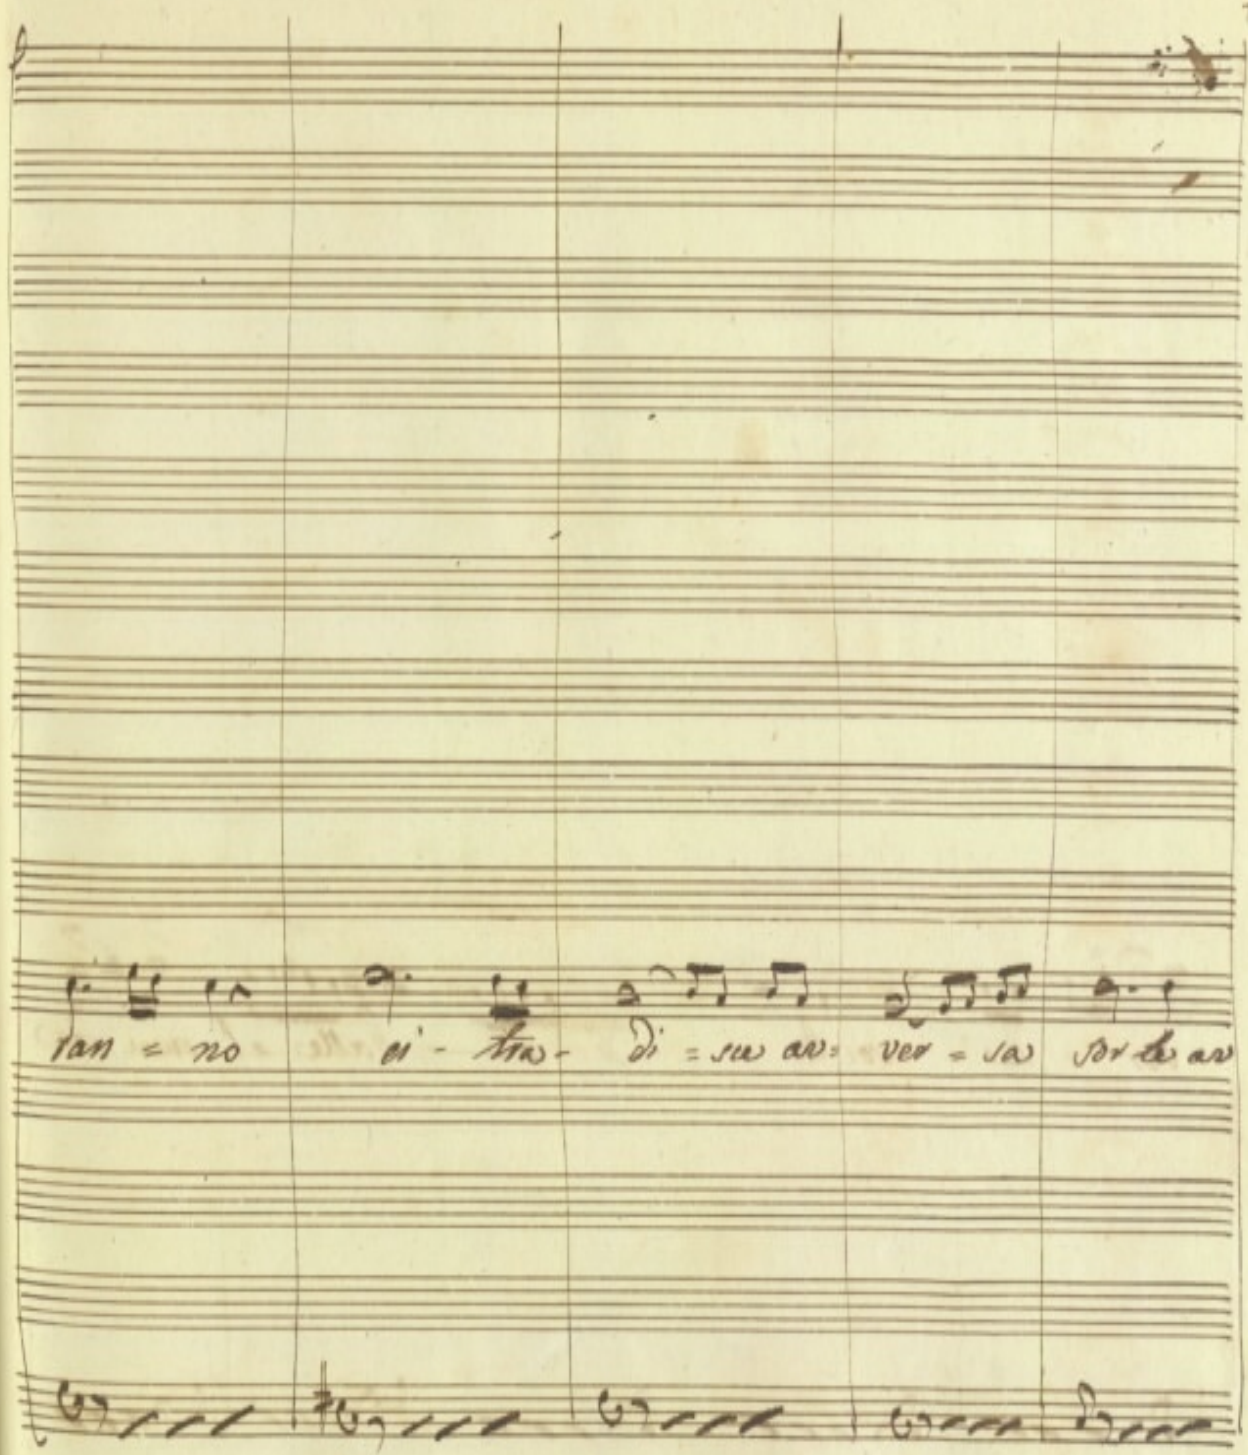 ran = no ei - tra - di = sce av = ver = sa sor te av